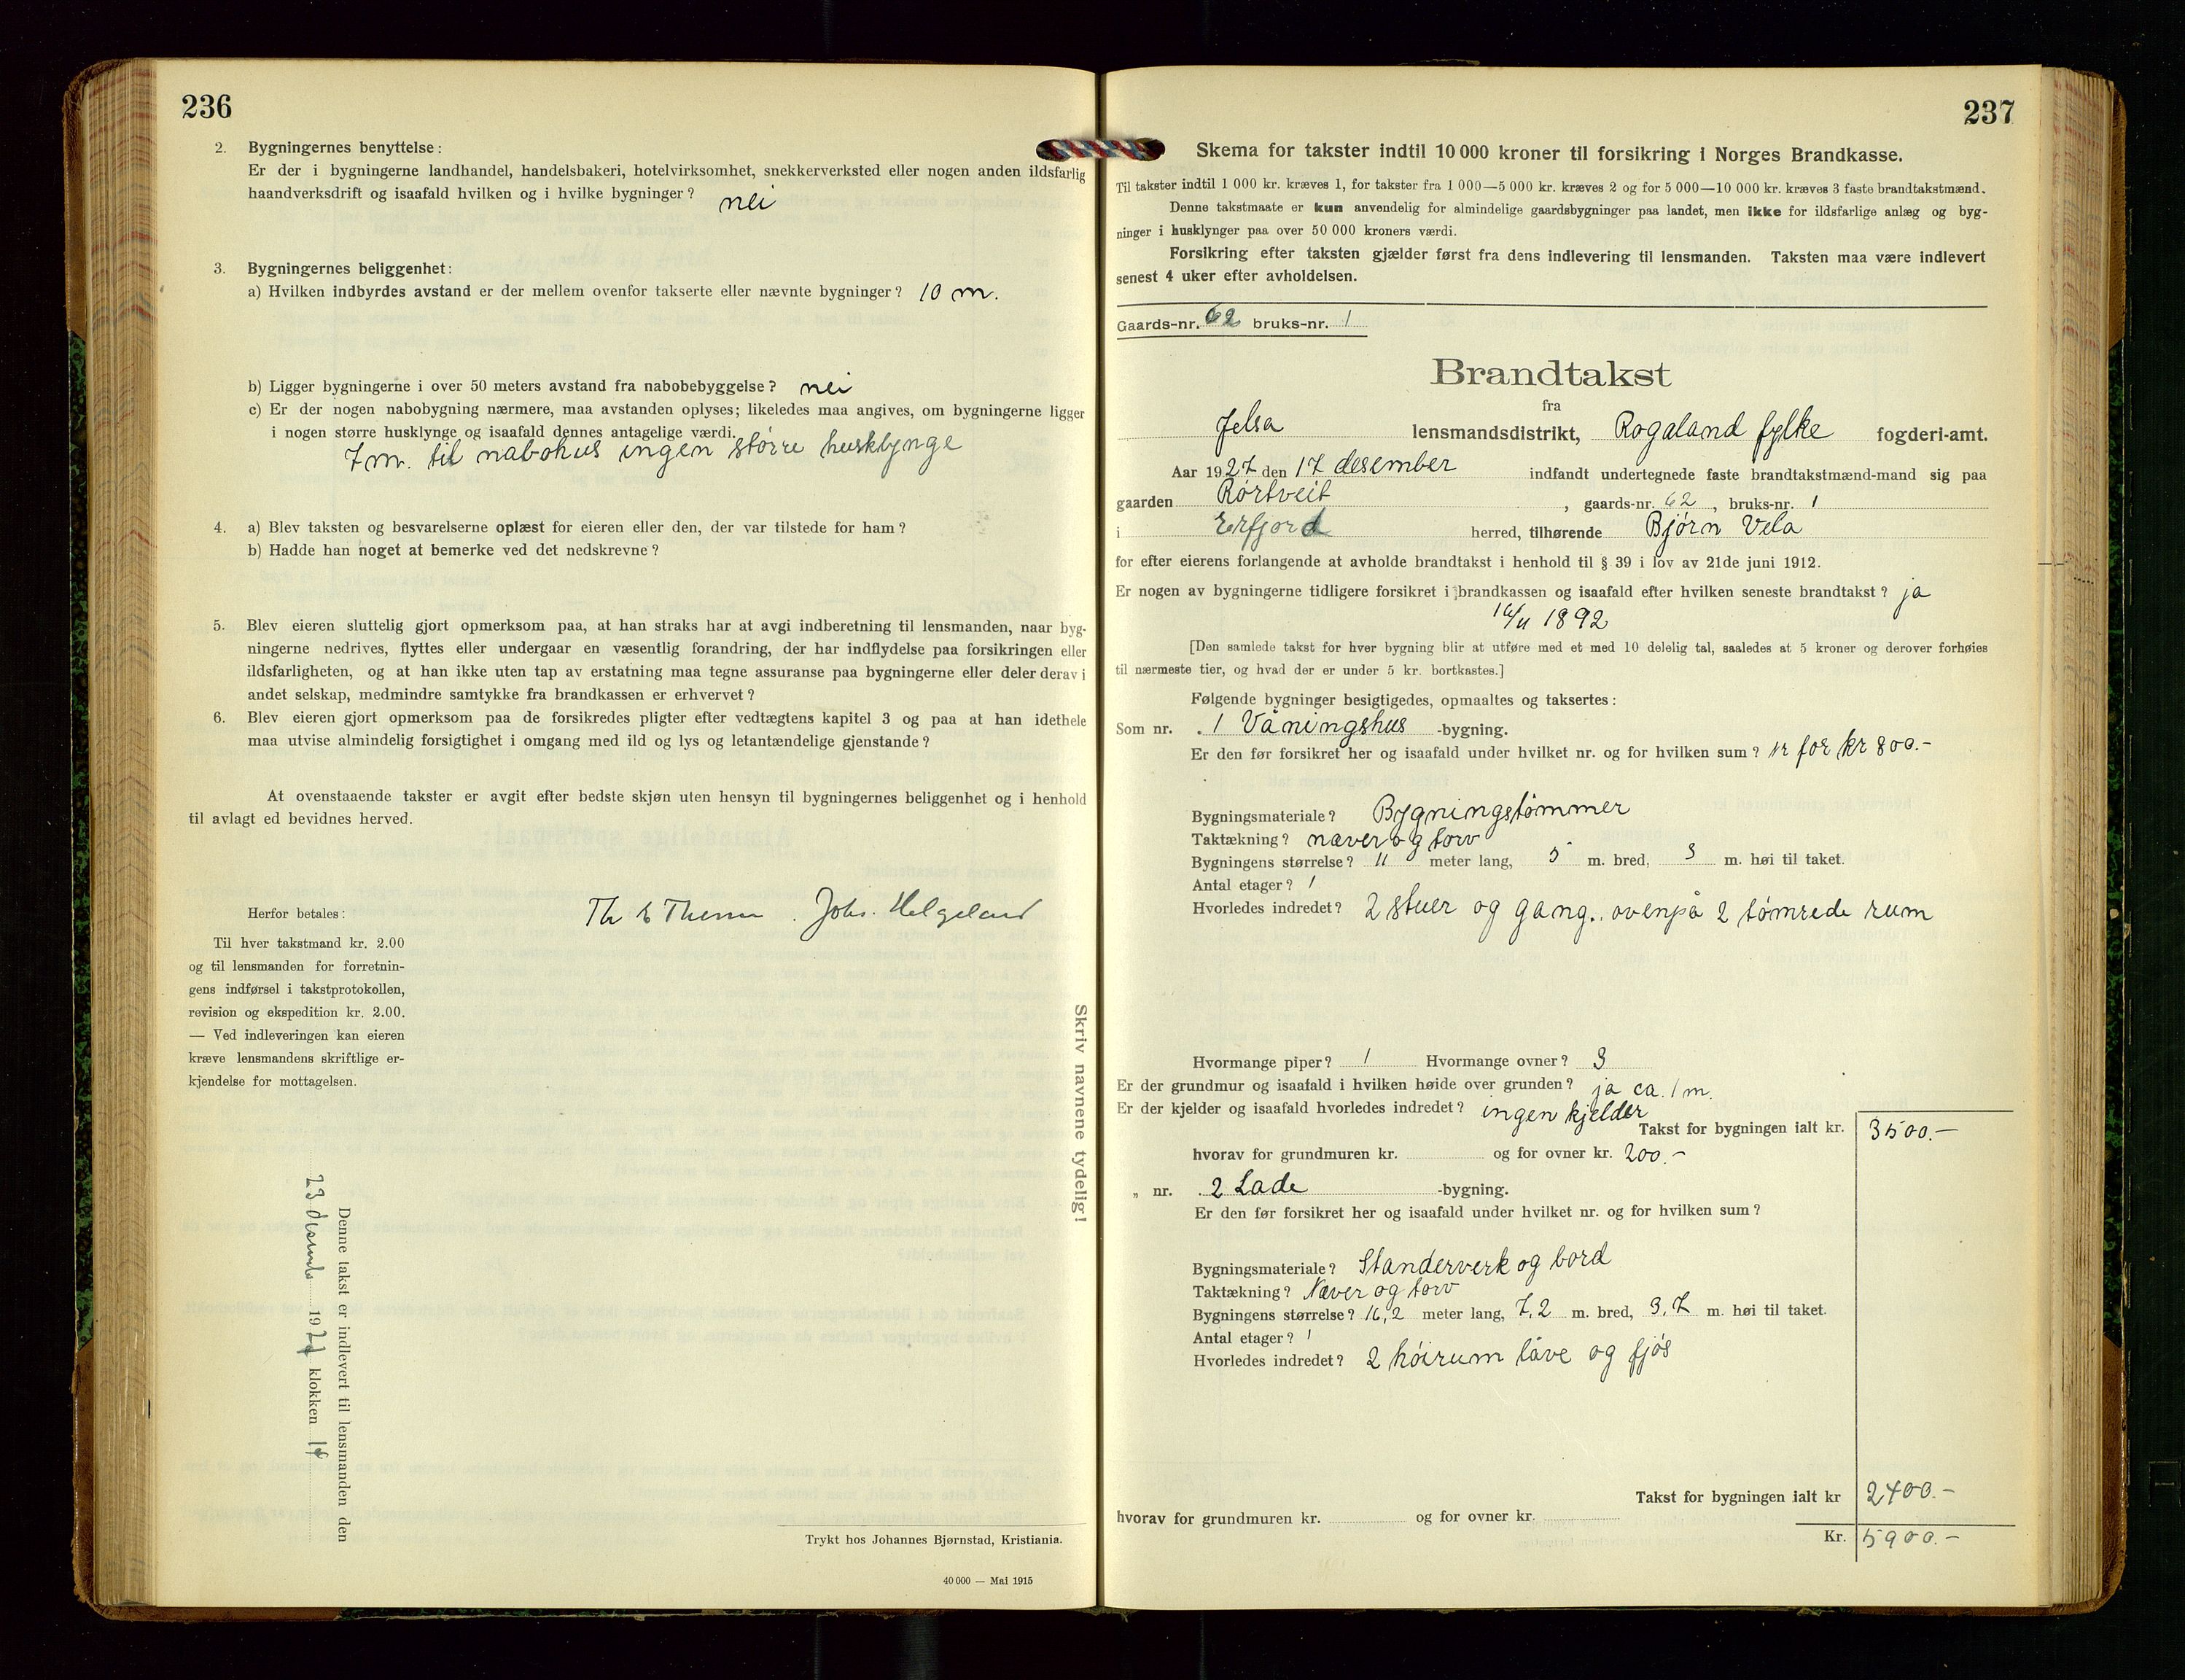 236
2. Bygningernes benyttelse:
Er der i bygningerne landhandel, handelsbakeri, hotelvirksomhet, snekkerverksted eller nogen anden ildsfarlig
haandverksdrift og isaafald hvilken og i hvilke bygninger? nei
3. Bygningernes beliggenhet:
a) Hvilken indbyrdes avstand er der mellem ovenfor takserte eller nævnte bygninger? 10 m.
b) Ligger bygningerne i over 50 meters avstand fra nabobebyggelse? nei
c) Er der nogen nabobygning nærmere, maa avstanden oplyses; likeledes maa angives, om bygningerne ligger
i nogen større husklynge og isaafald dennes antagelige værdi.
7 m. til nabohus ingen større husklynge
4. a) Blev taksten og besvarelserne oplæst for eieren eller den, der var tilstede for ham?
b) Hadde han noget at bemerke ved det nedskrevne?
5. Blev eieren sluttelig gjort opmerksom paa, at han straks har at avgi indberetning til lensmanden, naar byg-
ningerne nedrives, flyttes eller undergaar en væsentlig forandring, der har indflydelse paa forsikringen eller
ildsfarligheten, og at han ikke uten tap av erstatning maa tegne assuranse paa bygningerne eller deler derav i
andet selskap, medmindre samtykke fra brandkassen er erhvervet?
6. Blev eieren gjort opmerksom paa de forsikredes pligter efter vedtægtens kapitel 3 og paa at han idethele
maa utvise almindelig forsigtighet i omgang med ild og lys og letantændelige gjenstande?
At ovenstaaende takster er avgit efter bedste skjøn uten hensyn til bygningernes beliggenhet og i henhold
til avlagt ed bevidnes herved.
Johs. Helgeland
Herfor betales:
Til hver takstmand kr. 2.00
og til lensmanden for forretnin-
gens indførsel i takstprotokollen,
revision og ekspedition kr. 2.00.
— Ved indleveringen kan eieren
kræve lensmandens skriftlige er-
kjendelse for mottagelsen.
Denne takst er indlevert til lensmanden den
23 desemb 1927 klokken 14
Skriv navnene tydelig!
Trykt hos Johannes Bjørnstad, Kristiania.
40 000 — Mai 1915
237
Skema for takster indtil 10 000 kroner til forsikring i Norges Brandkasse.
Til takster indtil 1 000 kr. kræves 1, for takster fra 1 000—5 000 kr. kræves 2 og for 5 000—10 000 kr. kræves 3 faste brandtakstmænd.
Denne takstmaate er kun anvendelig for almindelige gaardsbygninger paa landet, men ikke for ildsfarlige anlæg og byg-
ninger i husklynger paa over 50 000 kroners værdi.
Forsikring efter taksten gjælder først fra dens indlevering til lensmanden. Taksten maa være indlevert
senest 4 uker efter avholdelsen.
Gaards-nr. 62 bruks-nr. 1
Brandtakst
fra
Jelsa lensmandsdistrikt, Rogaland fylke fogderi-amt.
Aar 1927 den 17 desember indfandt undertegnede faste brandtakstmænd-mand sig paa
gaarden Rørtveit, gaards-nr. 62, bruks-nr. 1
i Erfjord herred, tilhørende Bjørn Vela
for efter eierens forlangende at avholde brandtakst i henhold til § 39 i lov av 21de juni 1912.
Er nogen av bygningerne tidligere forsikret i brandkassen og isaafald efter hvilken seneste brandtakst? ja
16/11 1892
[Den samlede takst for hver bygning blir at utføre med et med 10 delelig tal, saaledes at 5 kroner og derover forhøies
til nærmeste tier, og hvad der er under 5 kr. bortkastes.]
Følgende bygninger besigtigedes, opmaaltes og taksertes:
Som nr. 1 Våningshus -bygning.
Er den før forsikret her og isaafald under hvilket nr. og for hvilken sum? for kr 800.-
Bygningsmateriale? Bygningstømmer
Taktækning? næver og torv
Bygningens størrelse? 11 meter lang, 5 m. bred, 3 m. høi til taket.
Antal etager? 1
Hvorledes indredet? 2 stuer og gang. ovenpå 2 tømrede rum
Hvormange piper? 1 Hvormange ovner? 3
Er der grundmur og isaafald i hvilken høide over grunden? ja ca. 1 m.
Er der kjelder og isaafald hvorledes indredet? ingen kjelder
Takst for bygningen ialt kr. 3500.-
hvorav for grundmuren kr. og for ovner kr. 200.-
„ nr. 2 Lade -bygning.
Er den før forsikret her og isaafald under hvilket nr. og for hvilken sum?
Bygningsmateriale? Standerverk og bord
Taktækning? Næver og torv
Bygningens størrelse? 16,2 meter lang, 7,2 m. bred, 3,7 m. høi til taket.
Antal etager? 1
Hvorledes indredet? 2 høirum låve og fjøs
Takst for bygningen ialt kr 2400.-
hvorav for grundmuren kr. og for ovner kr.
Kr. 5900.-